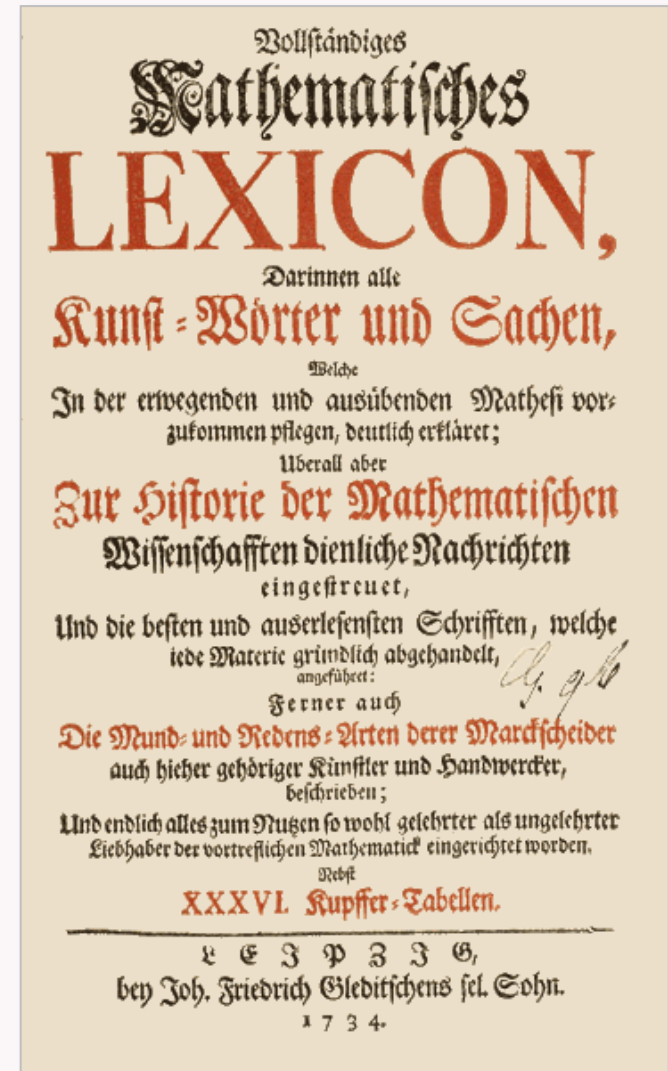 Vollständiges
Mathematisches
LEXICON,
Darinnen alle
Kunst-Wörter und Sachen,
Welche
In der erwegenden und ausübenden Mathesi vor-
zukommen pflegen, deutlich erkläret;
Uberall aber
Zur Historie der Mathematischen
Wissenschafften dienliche Nachrichten
eingestreuet,
Und die besten und auserlesensten Schrifften, welche
iede Materie gründlich abgehandelt,
angeführet:
Ferner auch
Die Mund- und Redens-Arten derer Marckscheider
auch hieher gehöriger Künstler und Handwercker,
beschrieben;
Und endlich alles zum Nutzen so wohl gelehrter als ungelehrter
Liebhaber der vortreflichen Mathematick eingerichtet worden.
Nebst
XXXVI. Kupffer-Tabellen.
LEIPZIG,
bey Joh. Friedrich Gleditschens sel. Sohn.
1734.